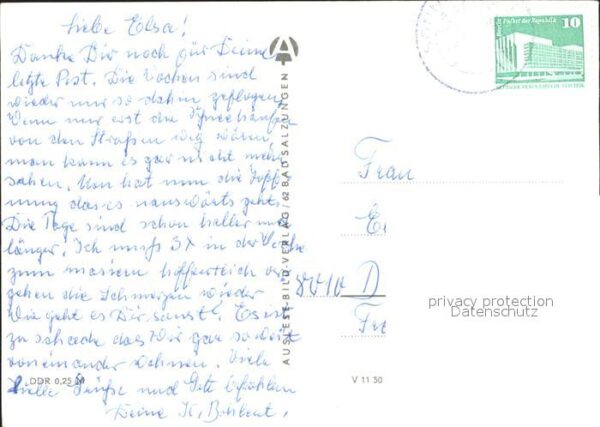 Liebe Elsa!
Danke Dir noch für Deine
letzte Post. Die Wochen sind
wieder nur so dahin geflogen,
Wenn nur erst die Schneehaufen
von den Straßen weg wären,
man kann es gar nicht mehr
sehen. Man hat nun die Hoff
nung das es nauswärts geht.
Die Tage sind schon heller und
länger. Ich muß 3x in der Woche
zum
gehen die Schmerzen wieder
Wie geht es Dir sonst? Es ist
zu schade das Wir gar so weit
voneinander wohnen. Viele
Grüße und Gott befohlen
Deine K.
AUSLESE-BILD-VERLAG / 62 BAD SALZUNGEN
DDR 0,25 M
V 11 50
Berlin Palast der Republik
10
Frau
8010 D
privacy protection
Datenschutz